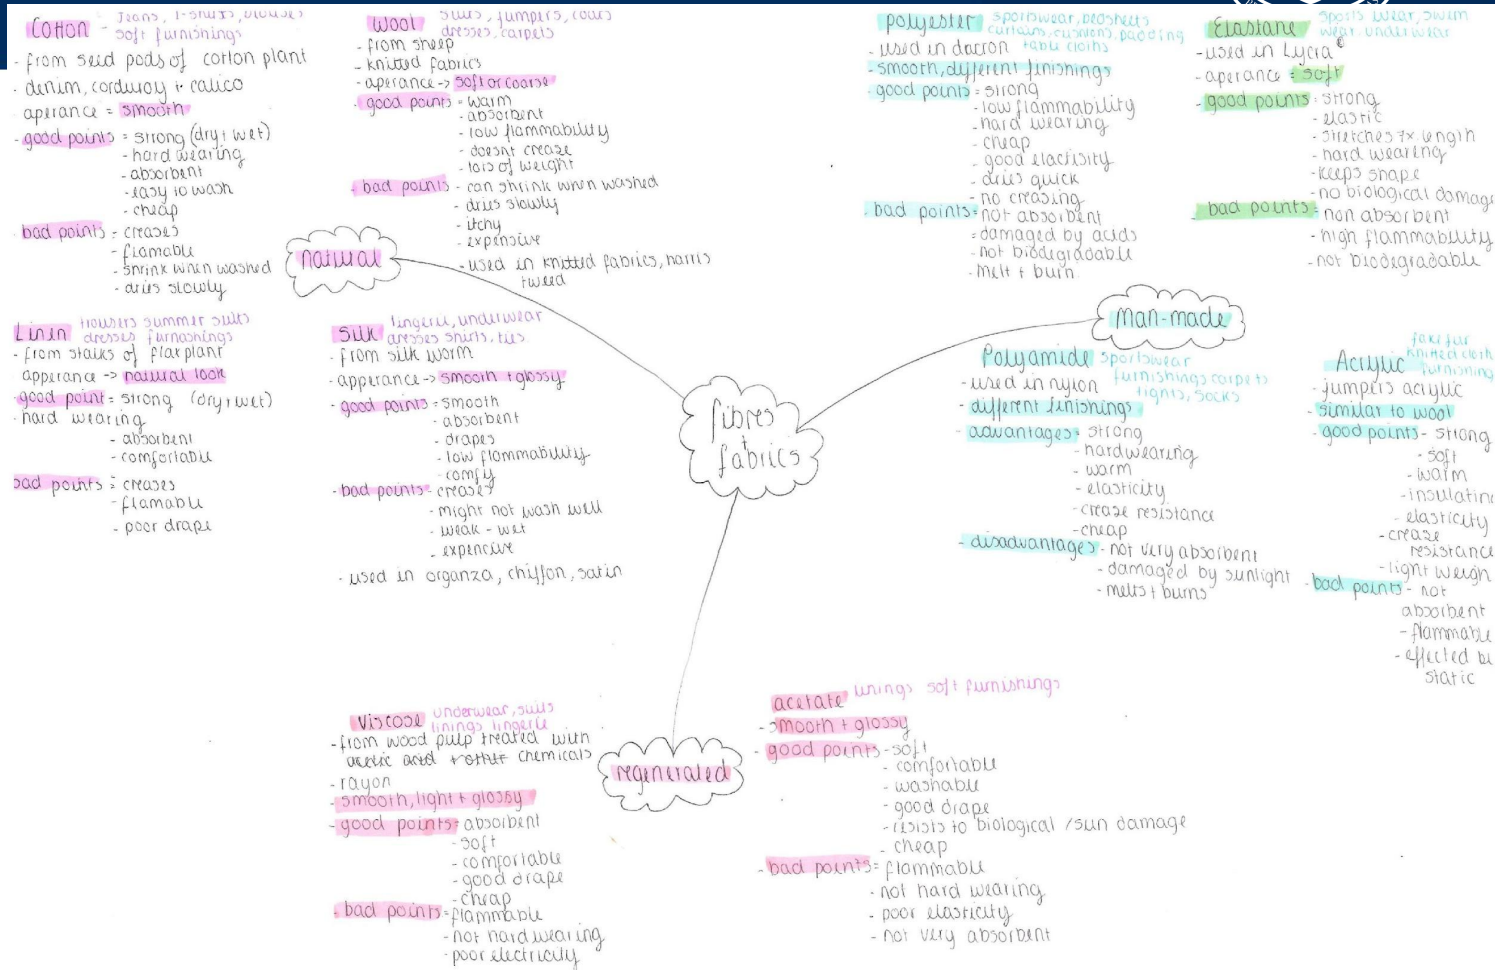 fibres
+
fabrics
natural
Cotton - Jeans, T-shirts, blouses
soft furnishings
- from seid pods of cotton plant
- denim, corduroy + calico
aperance = smooth
- good points = strong (dry + wet)
- hard wearing
- absorbent
- easy to wash
- cheap
- bad points = creases
- flamable
- shrink when washed
- dries slowly
Wool suits, jumpers, coats
dresses, carpets
- from sheep
- knitted fabrics
- aperance -> soft or coarse
- good points = warm
- absorbent
- low flammability
- doesnt crease
- lots of weight
- bad points - can shrink when washed
- dries slowly
- itchy
- expensive
- used in knitted fabrics, harris
tweed
Linen trousers summer suits
dresses furnashings
- from stalks of flax plant
apperance -> natural look
- good point = strong (dry + wet)
- hard wearing
- absorbent
- comfortable
bad points = creases
- flamable
- poor drape
Silk lingerie, underwear
dresses shirts, ties
- from silk worm
- apperance -> smooth + glossy
- good points = smooth
- absorbent
- drapes
- low flammability
- comfy
- bad points - creases
- might not wash well
- weak - wet
- expencive
- used in organza, chiffon, satin
man-made
polyester sportswear, bedsheets
curtains, cushions, padding
table cloths
- used in dacron
- smooth, different finishings
- good points = strong
- low flammability
- hard wearing
- cheap
- good elactisity
- dries quick
- no creasing
- bad points = not absorbent
= damaged by acids
- not biodegradable
- melt + burn
Elastane sports wear, swim
wear, underwear
- used in Lycra ®
- aperance = soft
- good points = strong
- elastic
- stretches 7x length
- hard wearing
- keeps shape
- no biological damage
- bad points = non absorbent
- high flammability
- not biodegradable
Polyamide sportswear
furnishings carpets
tights, socks
- used in nylon
- different finishings
- advantages = strong
- hardwearing
- warm
- elasticity
- crease resistance
- cheap
- disadvantages - not very absorbent
- damaged by sunlight
- melts + burns
Acrylic fake fur
knitted cloth
furnishing
- jumpers acrylic
- similar to wool
- good points - strong
- soft
- warm
- insulatin
- elasticity
- crease
resistance
- light weigh
- bad points - not
absorbent
- flammable
- effected by
static
regenerated
Viscose underwear, suits
linings lingerie
- from wood pulp treated with
acetic acid + other chemicals
- rayon
- smooth, light + glossy
- good points = absorbent
- soft
- comfortable
- good drape
- cheap
- bad points = flammable
- not hard wearing
- poor electricity
acetate linings soft furnishings
- smooth + glossy
- good points - soft
- comfortable
- washable
- good drape
- resists to biological / sun damage
- cheap
- bad points = flammable
- not hard wearing
- poor elasticity
- not very absorbent